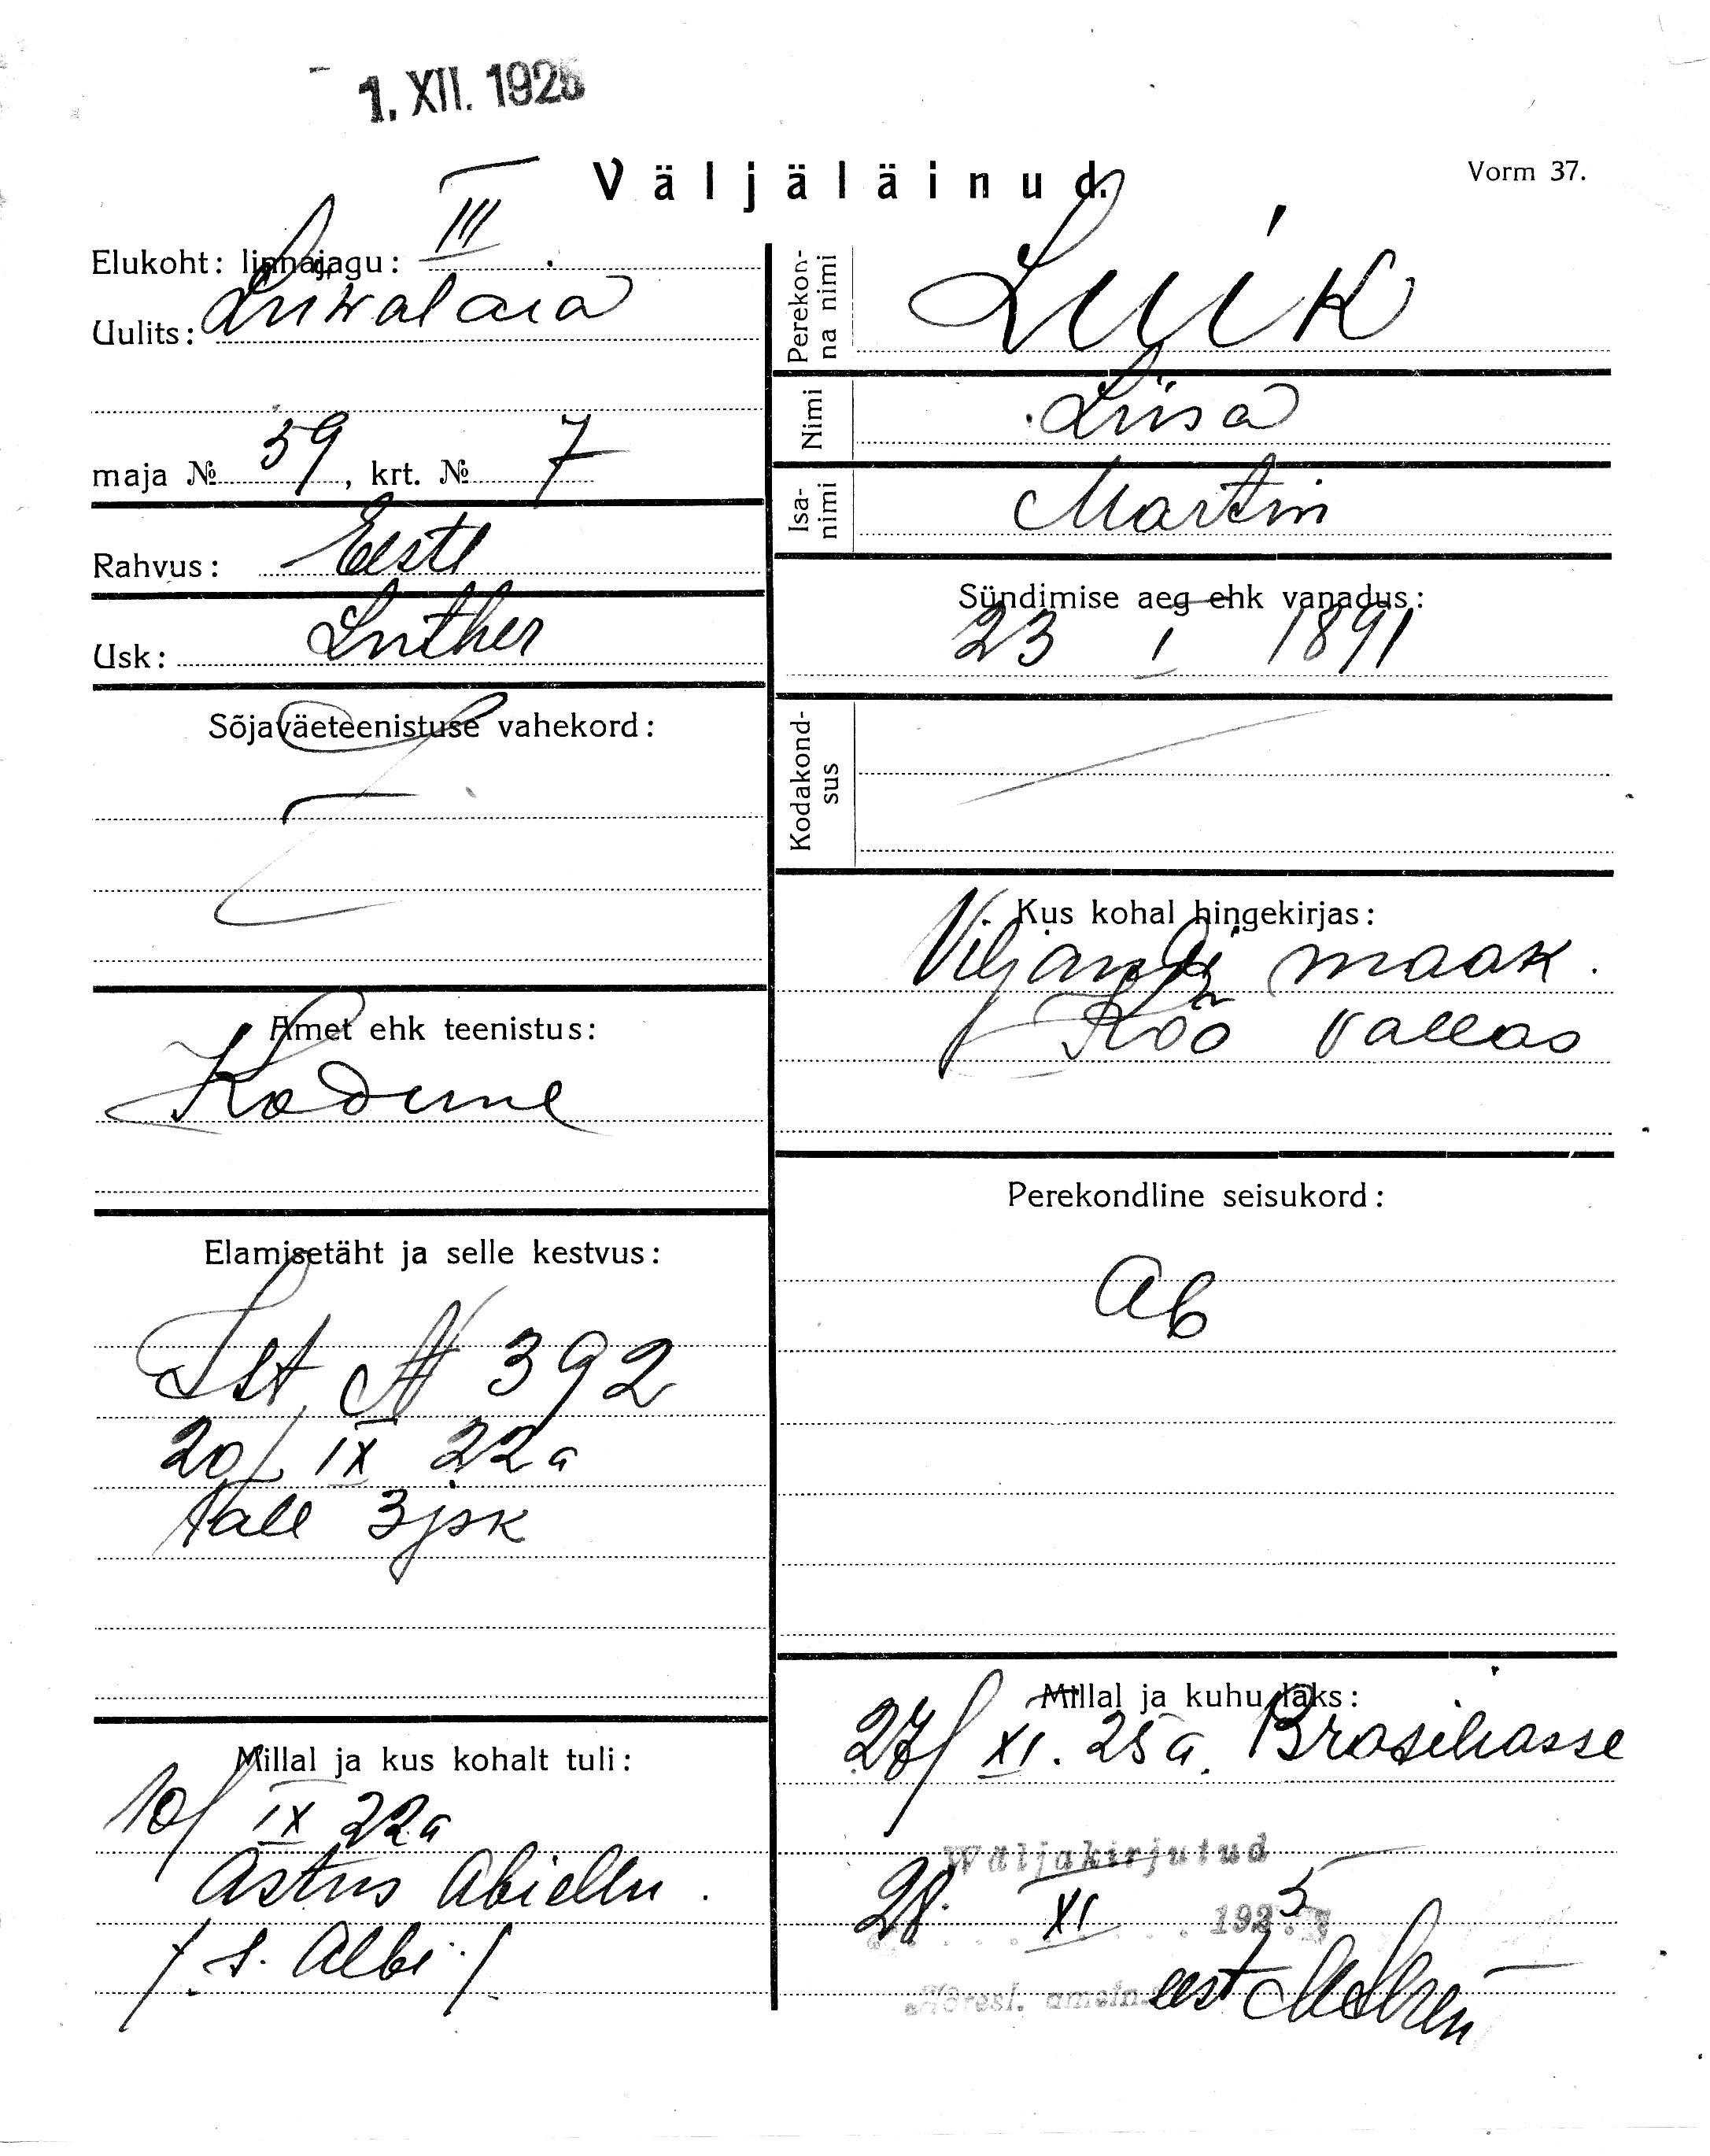 1. XII. 1925
Väljaläinud.
Vorm 37.
Elukoht: linnajagu: III
Uulits: Liiwalaia
maja № 59, krt. № 7
Rahvus: Eesti
Usk: Luther
Sõjaväeteenistuse vahekord:
Amet ehk teenistus:
Kodune
Elamisetäht ja selle kestvus:
Ist N 392
20/ IX 22a
Tall 3 jsk
Millal ja kus kohalt tuli:
10/ IX 22a
Astus Abiellu.
/s. Albi/
Perekonna nimi
Luik
Nimi
Liisa
Isanimi
Martin
Sündimise aeg ehk vanadus:
23 I 1891
Kodakondsus
Kus kohal hingekirjas:
Viljandi maak.
Köo vallas
Perekondline seisukord:
ab
Millal ja kuhu läks:
27/ XI. 25 a. Brasiliasse
Wäljakirjutud
28. XI 1925
Adresl. ametn. eest